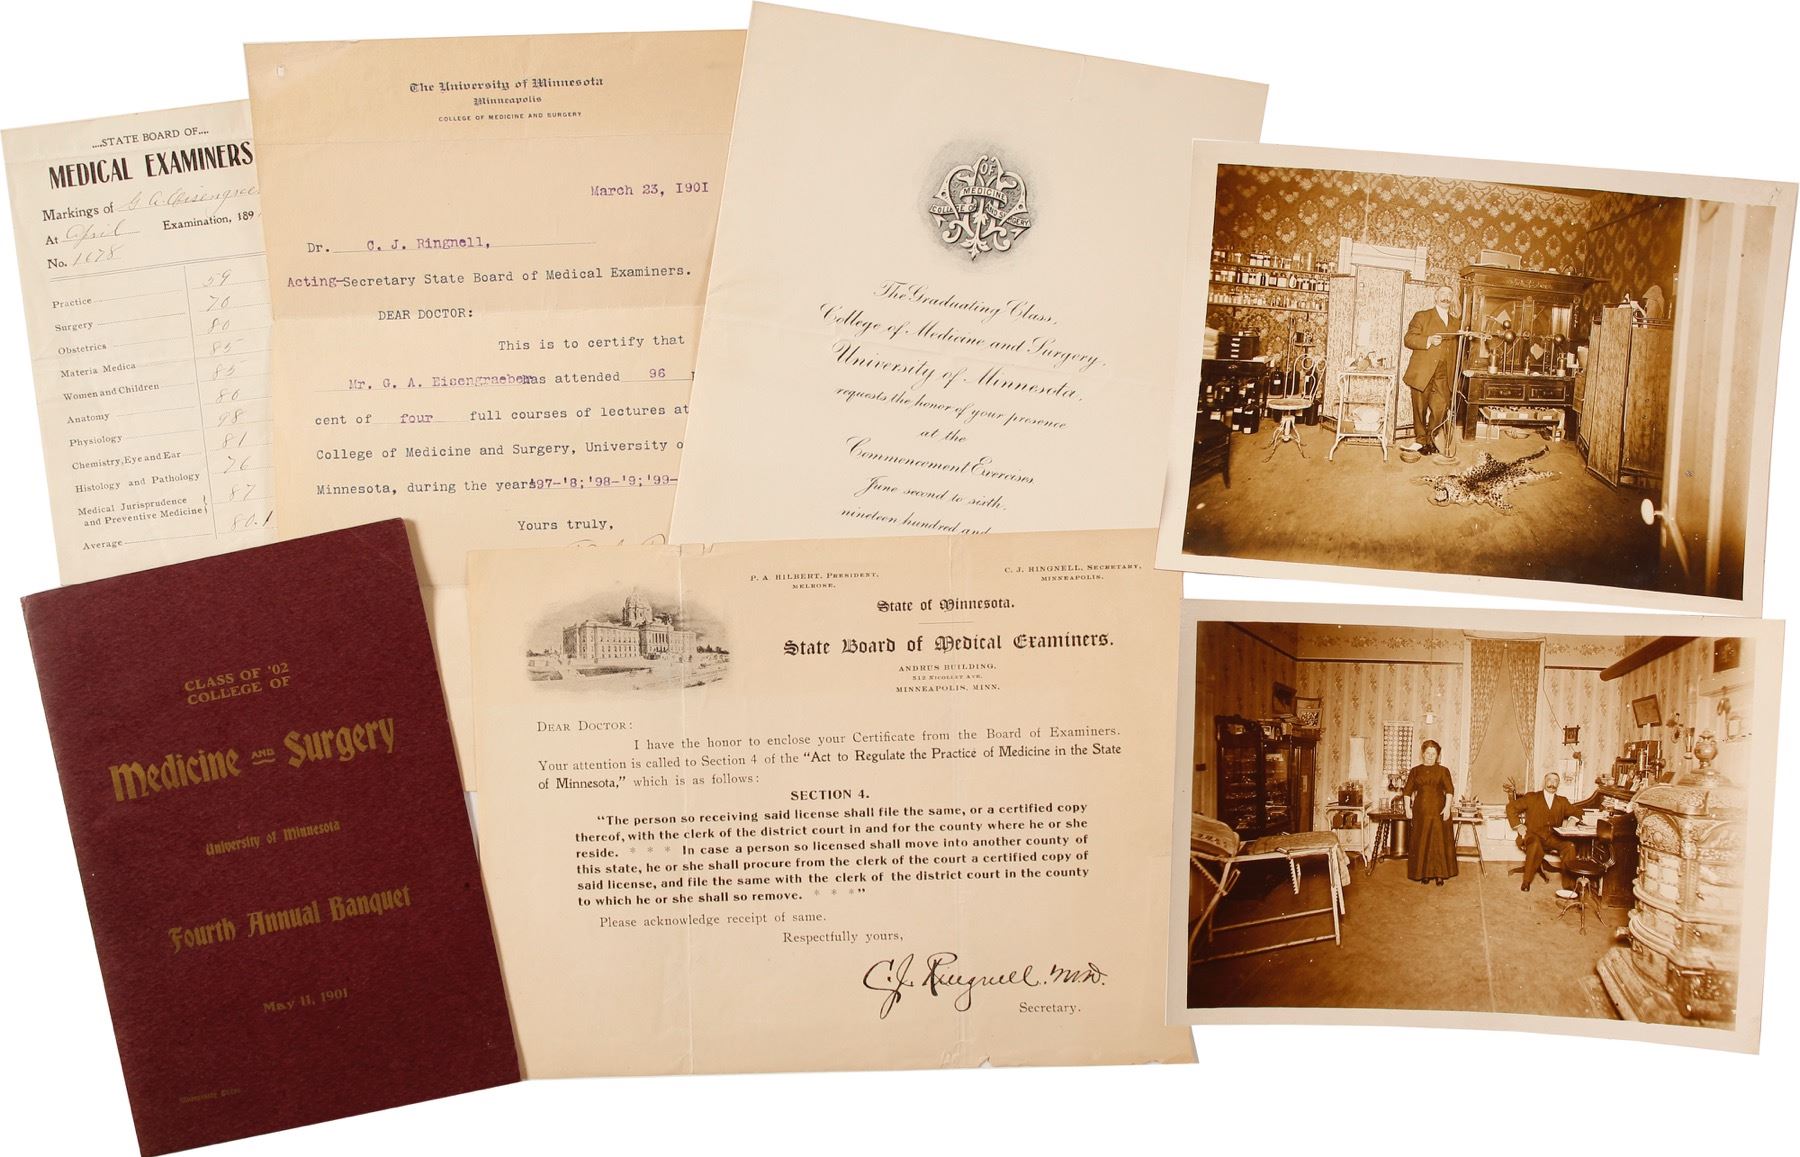 ....STATE BOARD OF....
MEDICAL EXAMINERS
Markings of G A Eisengrae
At April Examination, 189
No. 1678
Practice 59
Surgery 70
Obstetrics 80
Materia Medica 85
Women and Children 85
Anatomy 80
Physiology 98
Chemistry, Eye and Ear 81
Histology and Pathology 76
Medical Jurisprudence
and Preventive Medicine} 87
Average 80.1
The University of Minnesota
Minneapolis
COLLEGE OF MEDICINE AND SURGERY
March 23, 1901
Dr. C. J. Ringnell,
Acting-Secretary State Board of Medical Examiners.
DEAR DOCTOR:
This is to certify that
Mr. G. A. Eisengraeber has attended 96
cent of four full courses of lectures at
College of Medicine and Surgery, University o
Minnesota, during the years '97-'8;'98-'9;'99-
Yours truly,
OF
MEDICINE
COLLEGE OF AND SURGERY
The Graduating Class,
College of Medicine and Surgery,
University of Minnesota,
requests the honor of your presence
at the
Commencement Exercises
June second to sixth,
nineteen hundred and
CLASS OF '02
COLLEGE OF
Medicine AND Surgery
University of Minnesota
Fourth Annual Banquet
May 11, 1901
University Press
P. A. HILBERT, PRESIDENT,
MELROSE.
C. J. RINGNELL, SECRETARY,
MINNEAPOLIS.
State of Minnesota.
State Board of Medical Examiners.
ANDRUS BUILDING,
512 NICOLLET AVE.
MINNEAPOLIS, MINN.
DEAR DOCTOR:
I have the honor to enclose your Certificate from the Board of Examiners.
Your attention is called to Section 4 of the "Act to Regulate the Practice of Medicine in the State
of Minnesota," which is as follows:
SECTION 4.
"The person so receiving said license shall file the same, or a certified copy
thereof, with the clerk of the district court in and for the county where he or she
reside. * * * In case a person so licensed shall move into another county of
this state, he or she shall procure from the clerk of the court a certified copy of
said license, and file the same with the clerk of the district court in the county
to which he or she shall so remove. * * *"
Please acknowledge receipt of same.
Respectfully yours,
C. J. Ringnell, M.D.
Secretary.